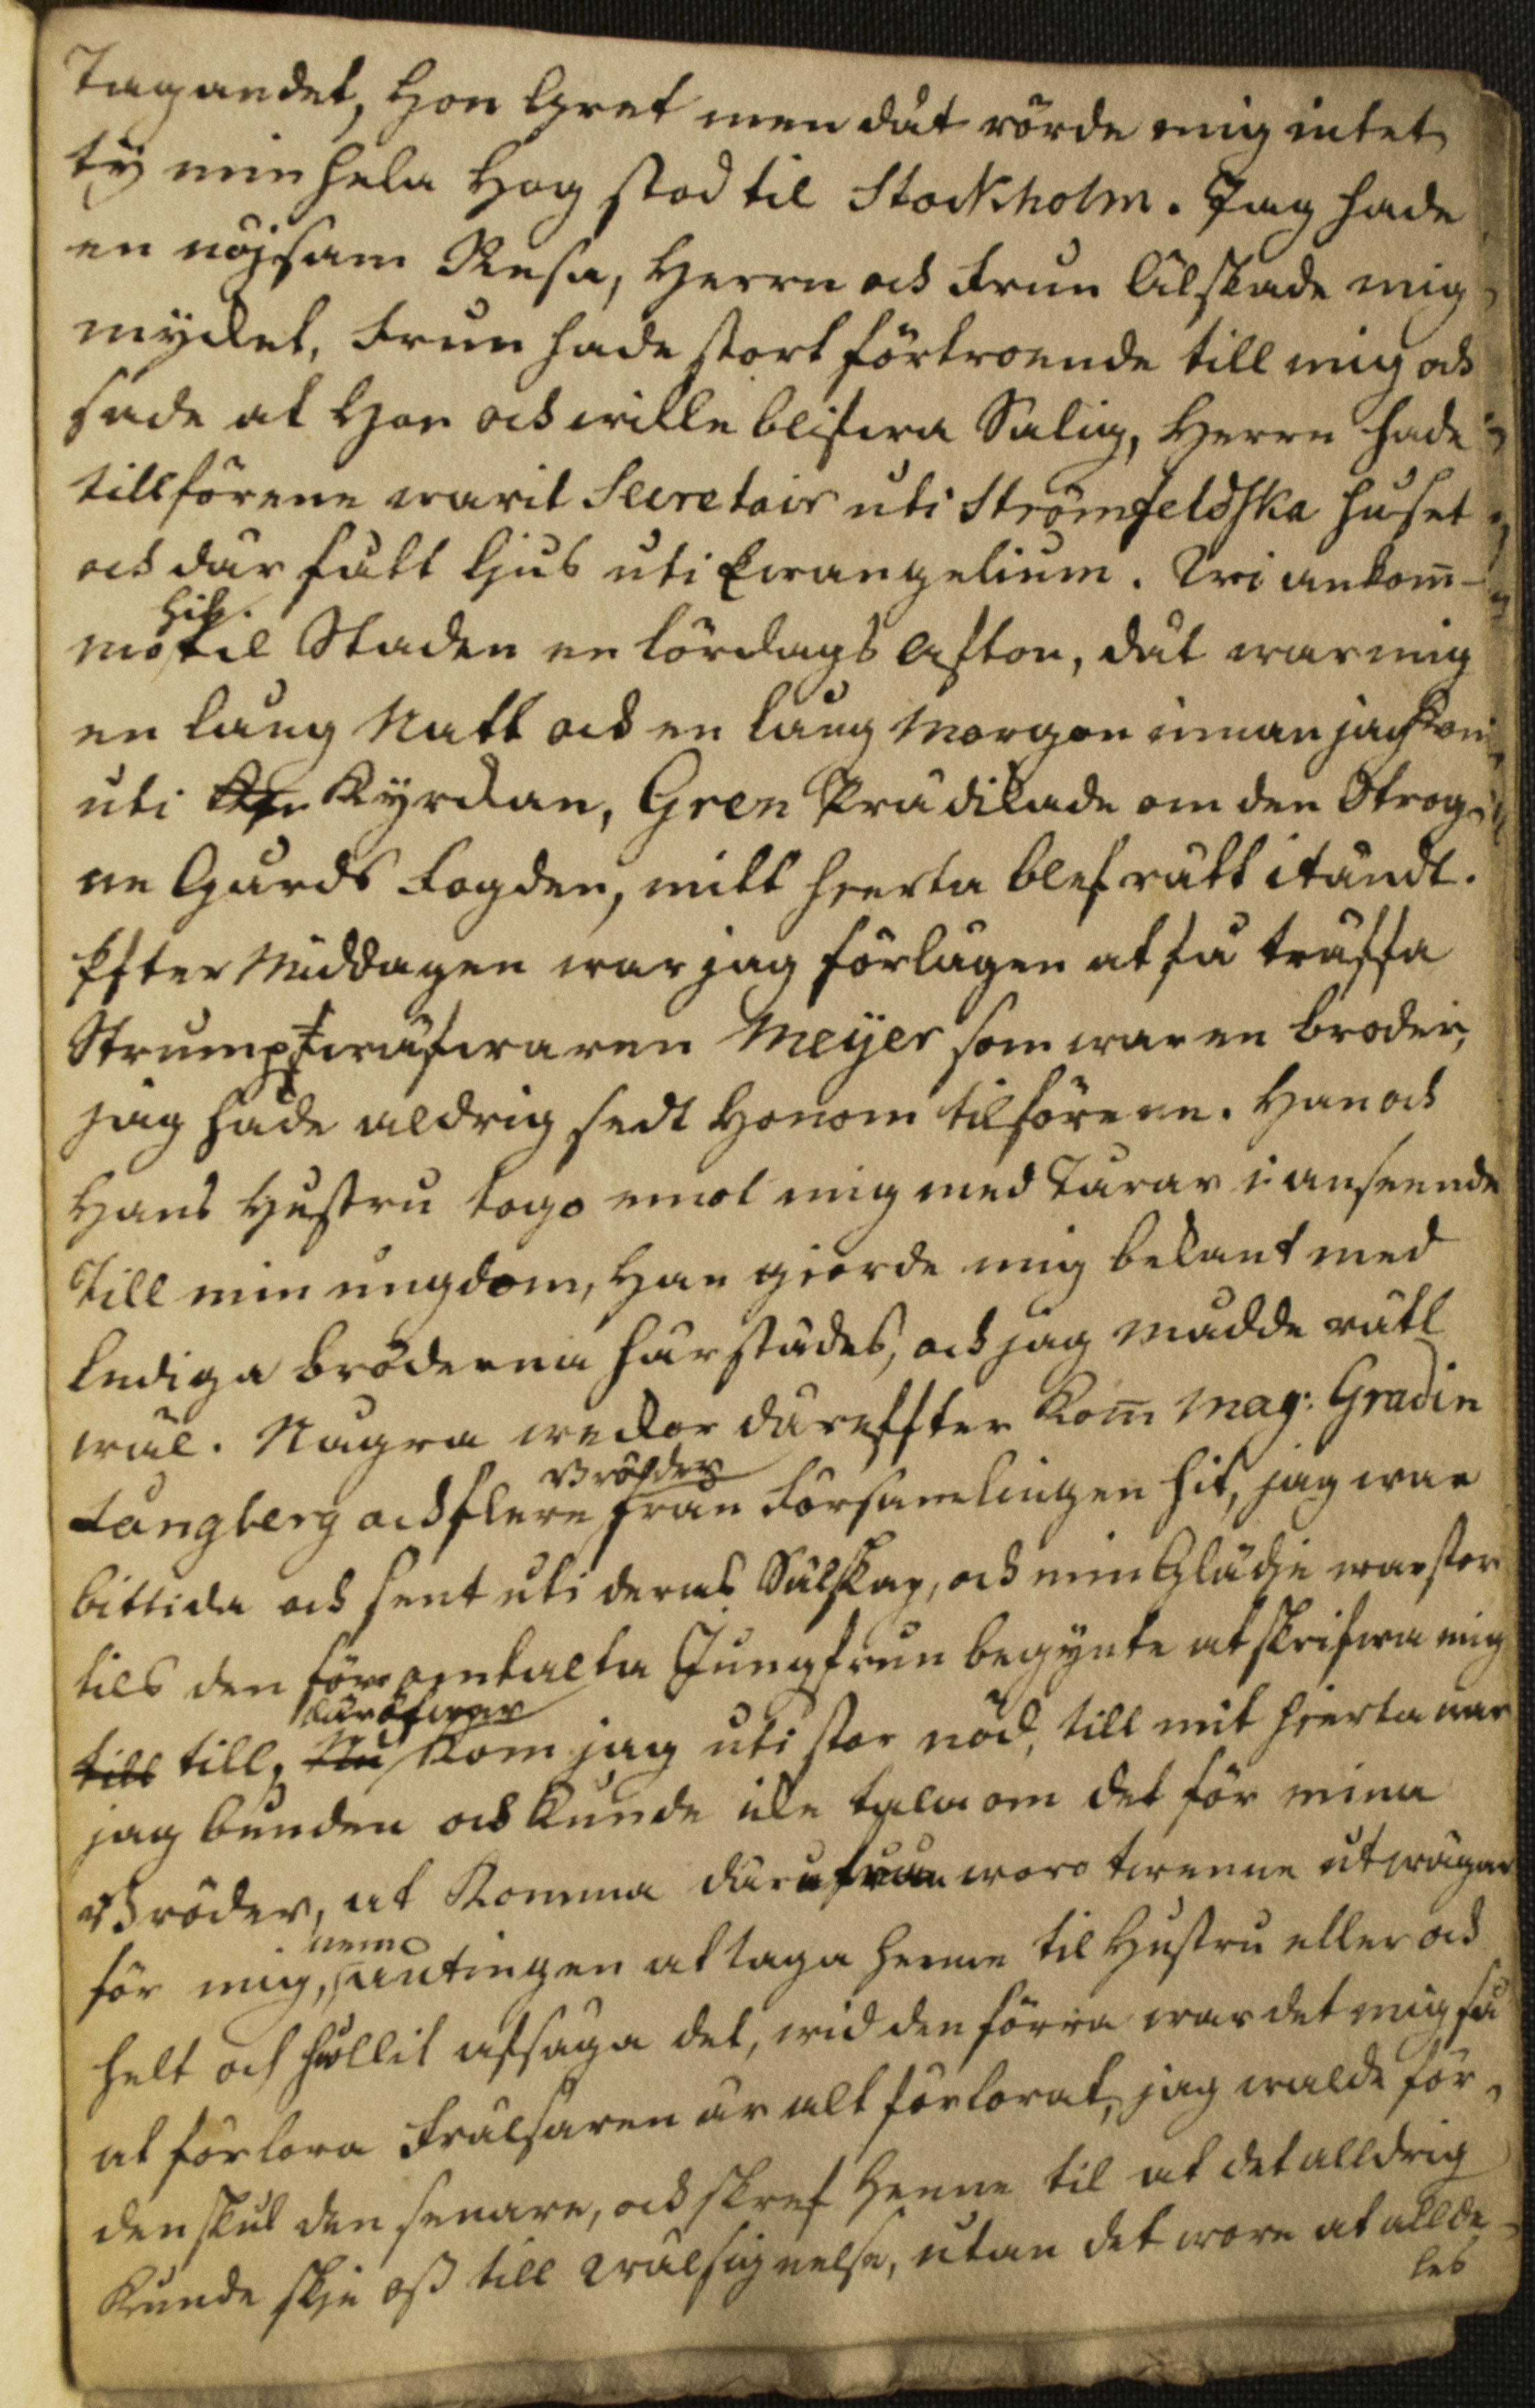 Tagandet, Hon Gret men dät rörde mig intet
tÿ min hela Hog stod til Stockholm. Jag hade
en nöjsam Resa, Herrn och Frun älskade mig
mÿcket, Frun hade stort förtroende till mig och
sade at Hon och wille blifwa Salig, Herrn hade
tillförene warit Secretair uti Strömfeldska huset
och där fått ljus uti Ewangelium. Wi ankom̄-
mo hit til Staden en lördags Afton, dät war mig
en lång Natt och en lång Morgon innan jag kom
uti Kÿrckan, Gren Prädikade om den Otrog-
ne Gårds Fogden, mitt hierta blef rätt itändt.
Efter Middagen war jag förlägen at få träffa
Strumpfwäfwaren Meÿer som war en broder,
jag hade aldrig sedt Honom tilförene. Han och
Hans Hustru togo emot mig med Tårar i anseende
Till min ungdom, Han giorde mig bekant med
lediga bröderna härstädes, och jag mådde rätt
wäl. Några weckor däreffter Kom̄ Mag: Gradin
Tangberg och flere Bröder från Församlingen hit, jag war
bittida och sent uti deras Sälskap, och min Glädje war stor
tils den föromtalta Jungfrun begÿnte at skrifwa mig
till till, Nu däröfwer Kom jag uti stor nöd, till mit hierta war
jag bunden och kunde icke tala om det för mina
Bröder, at Komma därifrån woro twenne utwägar
för mig, nemo antingen at taga henne til Hustru eller och
helt och hållit afsäga det, wid den förra war det mig så
at förlora Frälsaren är alt förlorat, jag walde för-
den skul den senare, och skref Henne til at det alldrig
Kunde skje oss till Wälsignelse, utan det wore at allde-
les